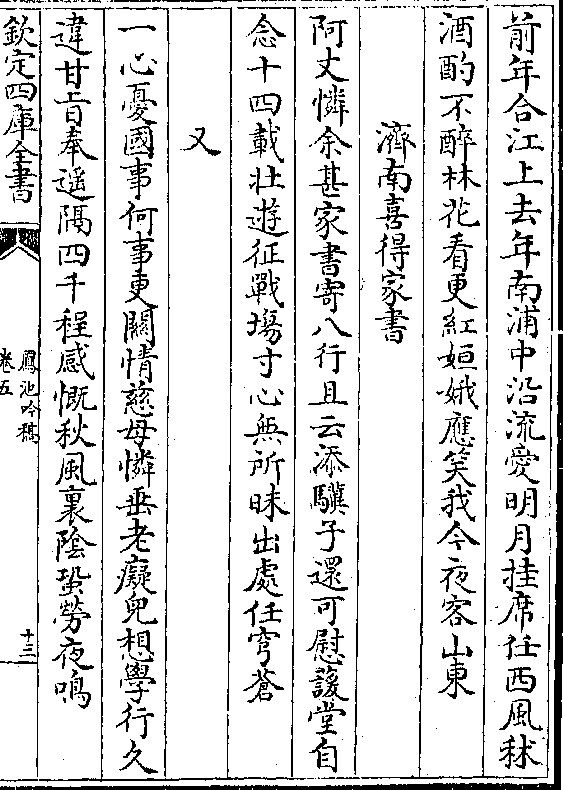 前年合江上去年南浦中沿流愛明月挂席任西風秫
酒酌不醉林花看更紅姮娥應笑我今夜客山東
濟南喜得家書
阿丈憐余甚家書寄八行且云添驥子還可慰諼堂自
念十四載壯遊征戰場寸心無所昧出處任穹蒼
又
一心憂國事何事更關情慈母憐垂老癡兒想學行久
違甘旨奉遥隔四千程感慨秋風裏陰蛩勞夜鳴
欽定四庫全書
鳳池吟稿
卷五
十三